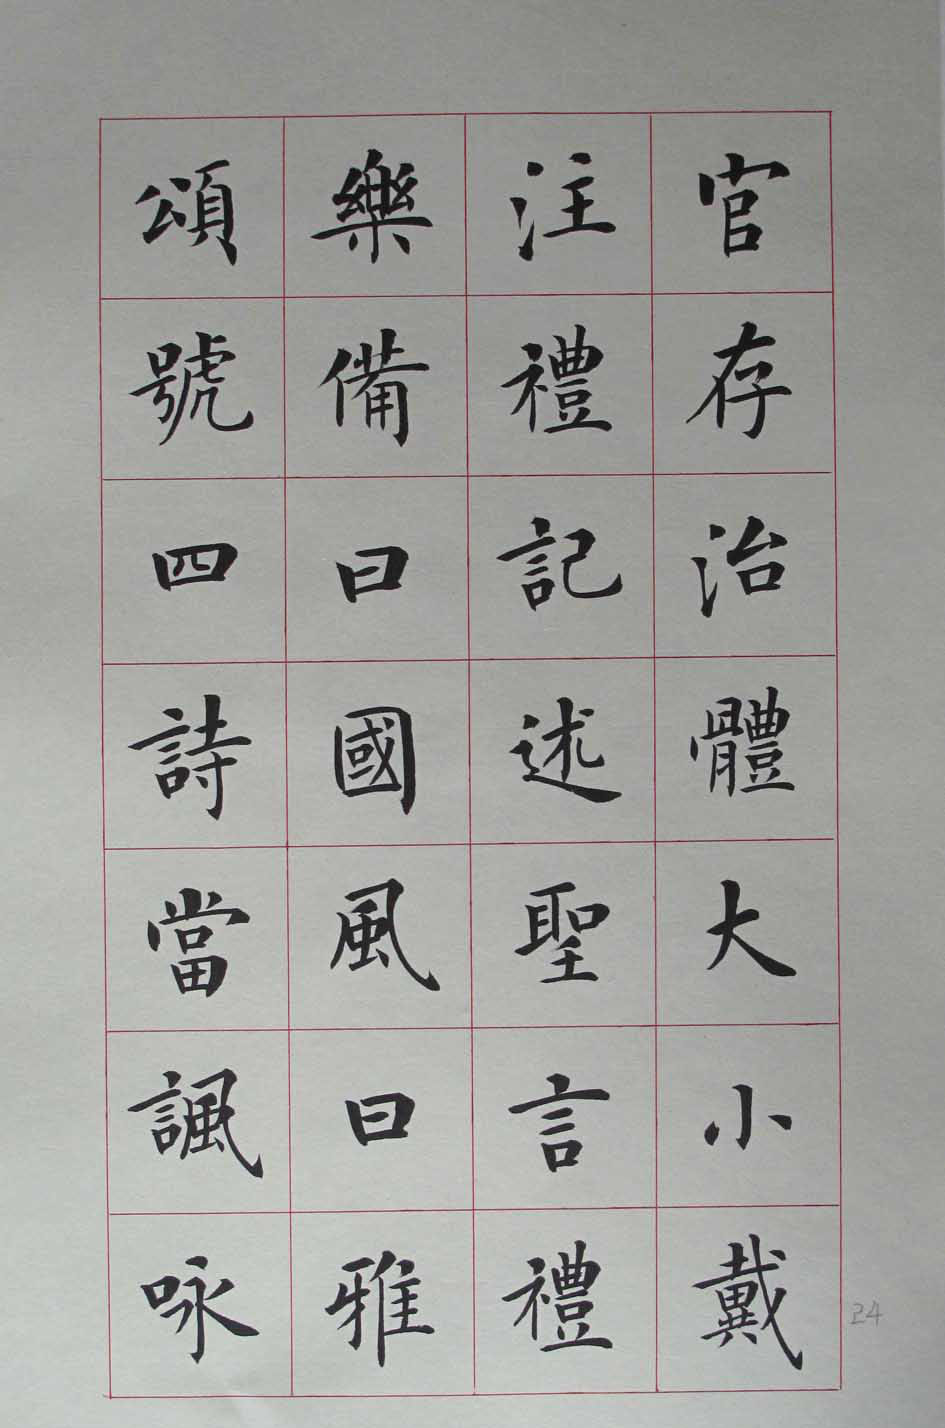 官存治體大小戴
注禮記述聖言禮
樂備曰國風曰雅
頌號四詩當諷咏
24